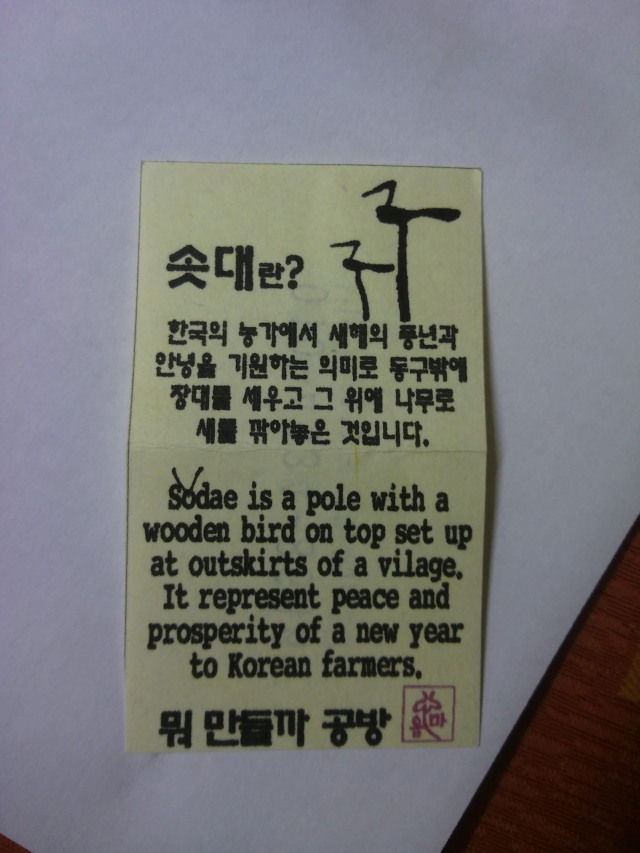 솟대란?
한국의 농가에서 새해의 풍년과
안녕을 기원하는 의미로 동구밖에
장대를 세우고 그 위에 나무로
새를 깎아놓은 것입니다.
Sodae is a pole with a
wooden bird on top set up
at outskirts of a vilage.
It represent peace and
prosperity of a new year
to Korean farmers.
뭐 만들까 공방